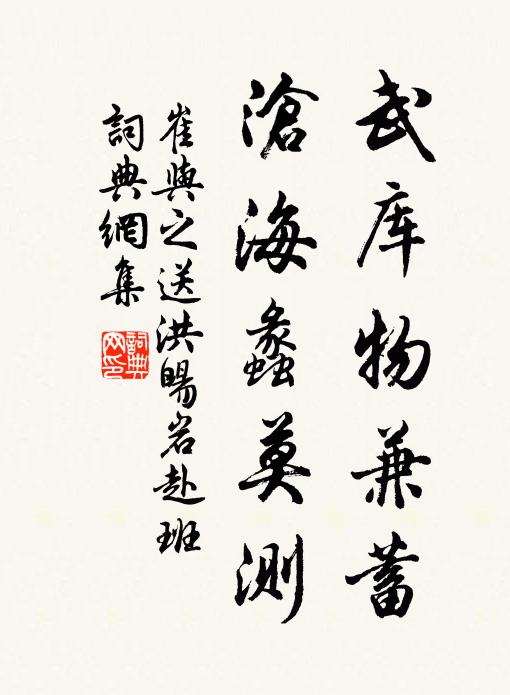 武库物兼蓄
滄海蠡莫測
崔與之送洪暘岩赴班
詞典網集
詞典
网印